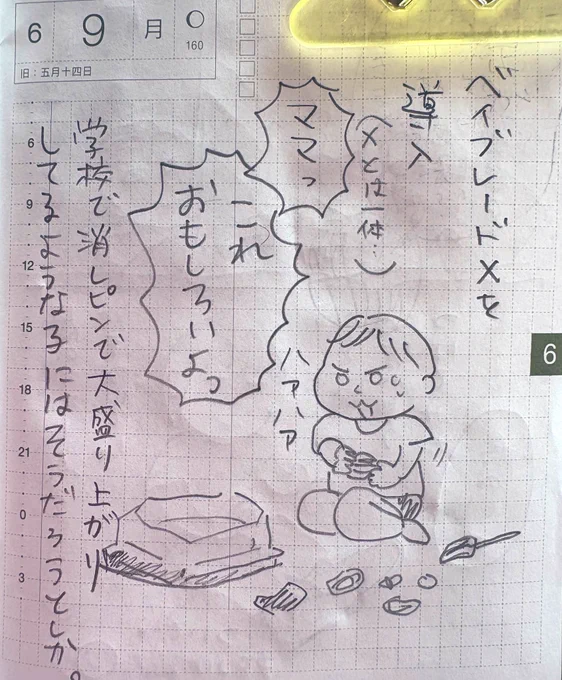 6 9 月 ○
160
旧：五月十四日
6
9
12
15
18
21
0
3
6
ベイブレードXを
導入
(Xとは一体…)
ママっ
これ
おもしろいよっ
ハァハァ
学校で消しピンで大盛り上がり
してるような子にはそうだろうとしか。